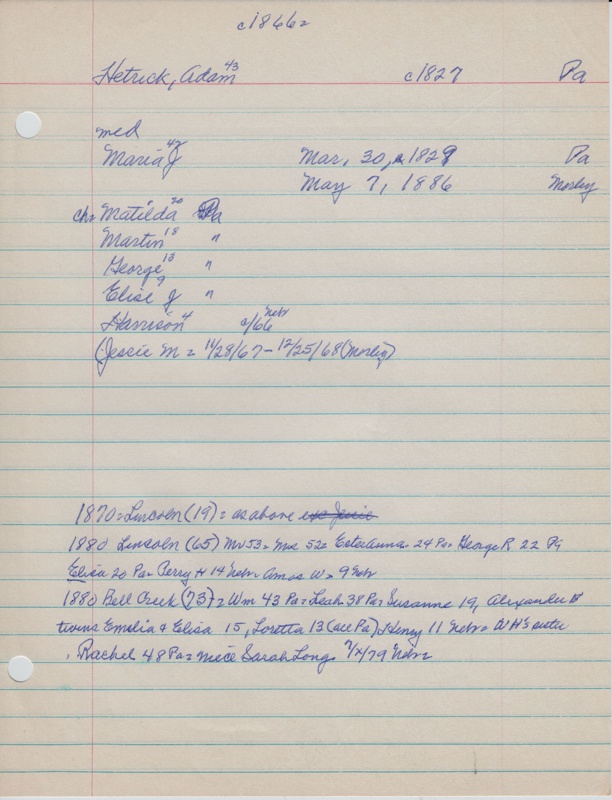 c1866=
Hetrick, Adam 43 c1827 Pa
med
Maria J 42 Mar, 30, 1829 Pa
May 7, 1886 Morley
ch= Matilda 20 Pa
Martin 18 "
George 13 "
Elise J 9 "
Harrison 4 c/66 Nebr
(Jessie M = 11/28/67 - 12/25/68 (Morley)
1870 = Lincoln (19) = as above exc Jessie
1880 Lincoln (65) 53 = 52 = 24 Pa = George R 22 Pa
Elisa 20 Pa = Perry H 14 Nebr = Amos W = 9 Nebr
1880 Bell Creek (73) = Wm 43 Pa = Leah 38 Pa = Susanna 19, Alexander
twins Emelia & Elisa 15, Loretta 13 (all Pa), Henry 11 Nebr = WH's sister
Rachel 48 Pa = niece Sarah Long /79 Nebr =